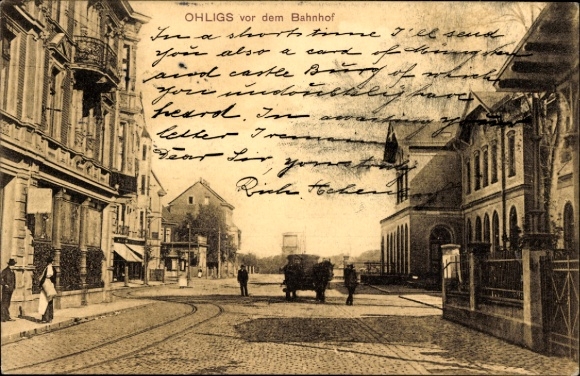 OHLIGS vor dem Bahnhof
In a short time I'll send
you also a card of
and castle Burg of which
you undoubtedly have
heard. In awaiting your
letter I remain
Dear Sir, yours
Rich.